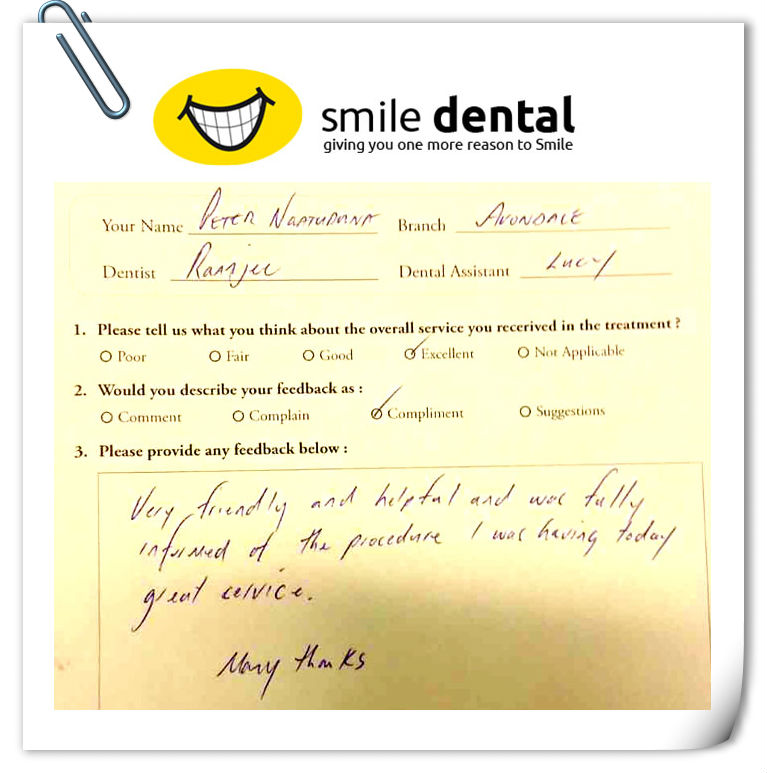 smile dental
giving you one more reason to Smile
Your Name PETER Branch AVONDALE
Dentist Ramjee Dental Assistant Lucy
1. Please tell us what you think about the overall service you recerived in the treatment ?
Poor Fair Good Excellent Not Applicable
2. Would you describe your feedback as :
Comment Complain Compliment Suggestions
3. Please provide any feedback below :
Very friendly and helpful and was fully
informed of the procedure I was having today
great service.
Many thanks